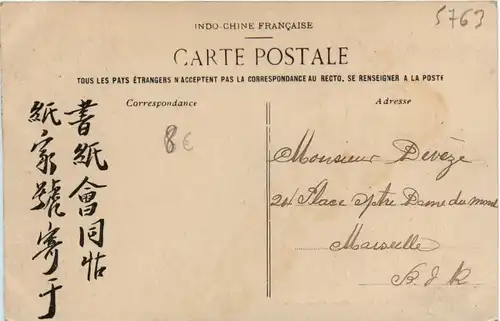 INDO-CHINE FRANÇAISE
5763
CARTE POSTALE
TOUS LES PAYS ÉTRANGERS N'ACCEPTENT PAS LA CORRESPONDANCE AU RECTO, SE RENSEIGNER A LA POSTE
Correspondance
Adresse
8€
書紙會同帖
紙家號寄于
Monsieur Devèze
24 Place Notre Dame du mont
Marseille
B. d R.